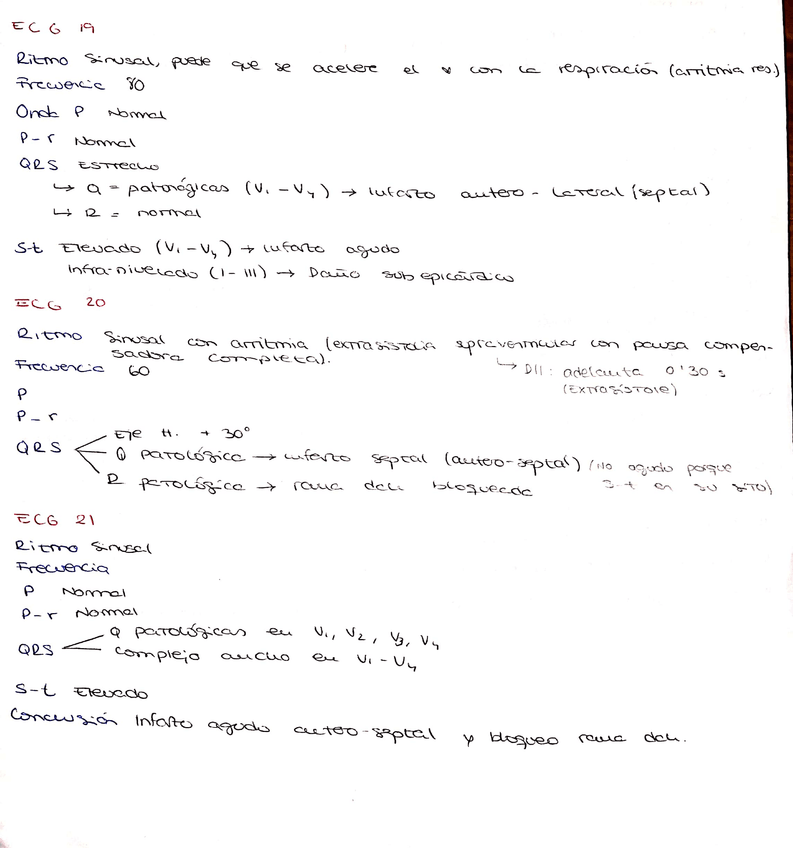 ECG 19
Ritmo Sinusal, puede que se acelere el ♥ con la respiración (arritmia res.)
Frecuencia 80
Onda P Normal
P-r Normal
QRS Estrecho
↳ Q = patológicas (V1 - V4) → Infarto antero-lateral (septal)
↳ R = normal
S-t Elevado (V1 - V4) → Infarto agudo
Infra-nivelado (I - III) → Daño subepicárdico
ECG 20
Ritmo Sinusal con arritmia (extrasistolia supraventricular con pausa compen-
sadora completa).
↳ DII: adelanta 0'30 s
Frecuencia 60
(EXTRASÍSTOLE)
P
P-r
Eje H. + 30°
QRS Q patológica → infarto septal (antero-septal) (No agudo porque
R patológica → rama dch bloqueada S-t en su sitio)
ECG 21
Ritmo Sinusal
Frecuencia
P Normal
P-r Normal
Q patológicas en V1, V2, V3, V4
QRS complejo ancho en V1 - V4
S-t Elevado
Conclusión Infarto agudo antero-septal y bloqueo rama dch.